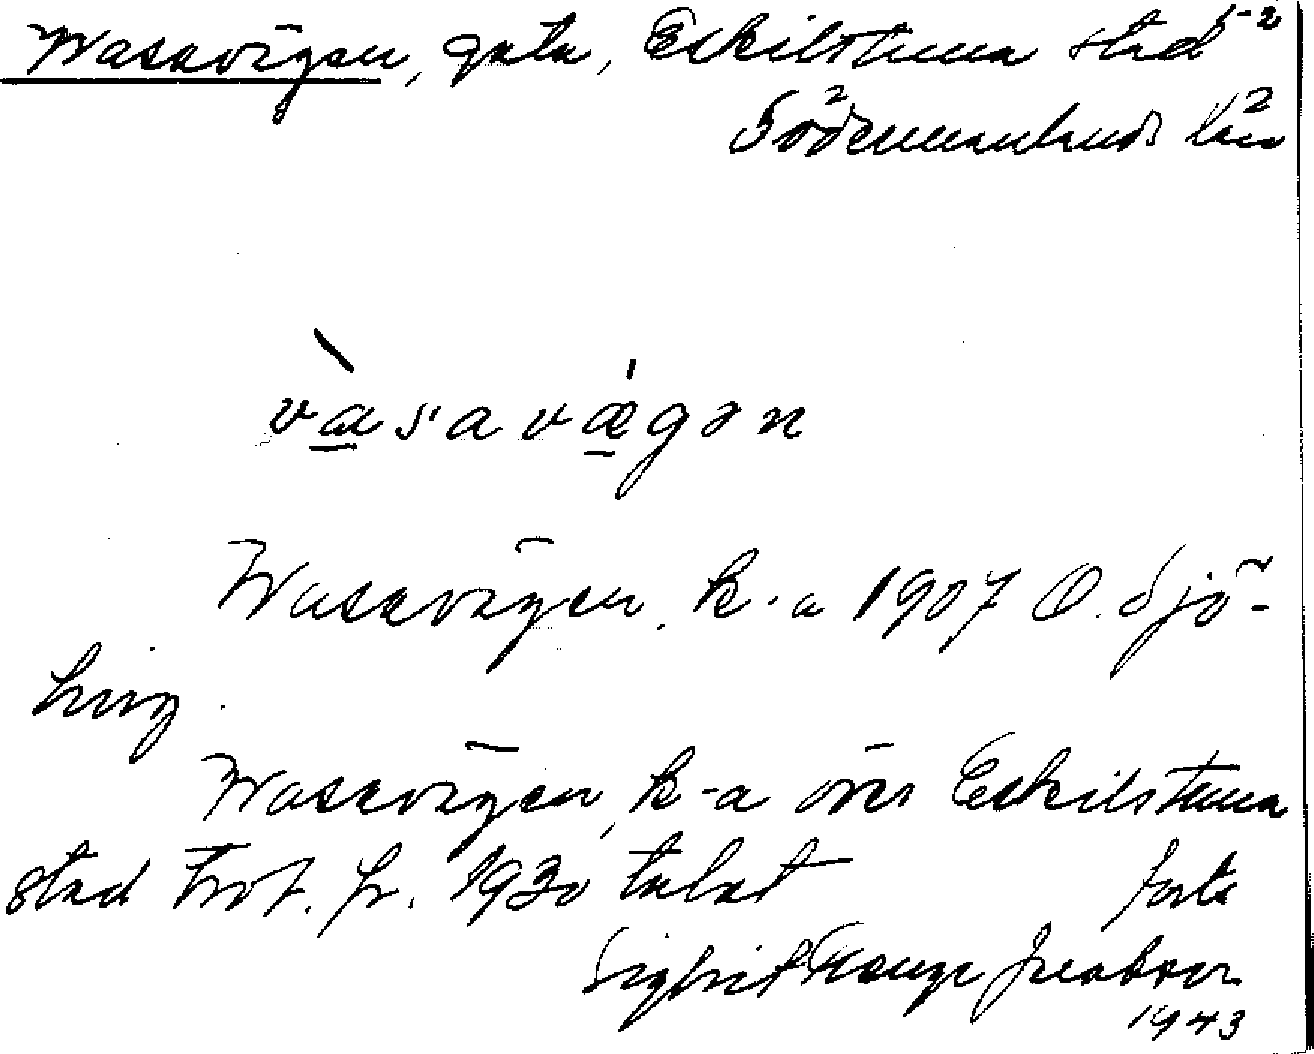 Wasavägen, gata, Eskilstuna stad
Södermanlands län
vàsavägən
Wasavägen, k-a 1907 O. Sjö-
king
Wasavägen, k-a över Eskilstuna
stad trol. fr. 1930 talet forts
Sigfrid Jacobson
1943